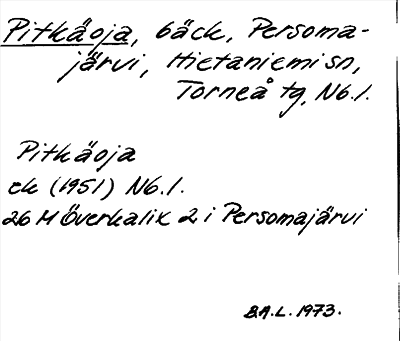 Pitkäoja, bäck, Persoma-
järvi, Hietaniemi sn,
Torneå tg, Nb.l.
Pitkäoja
ek (1951) Nb.l.
26 M Överkalix 2 i Persomajärvi
B.A.L. 1973.